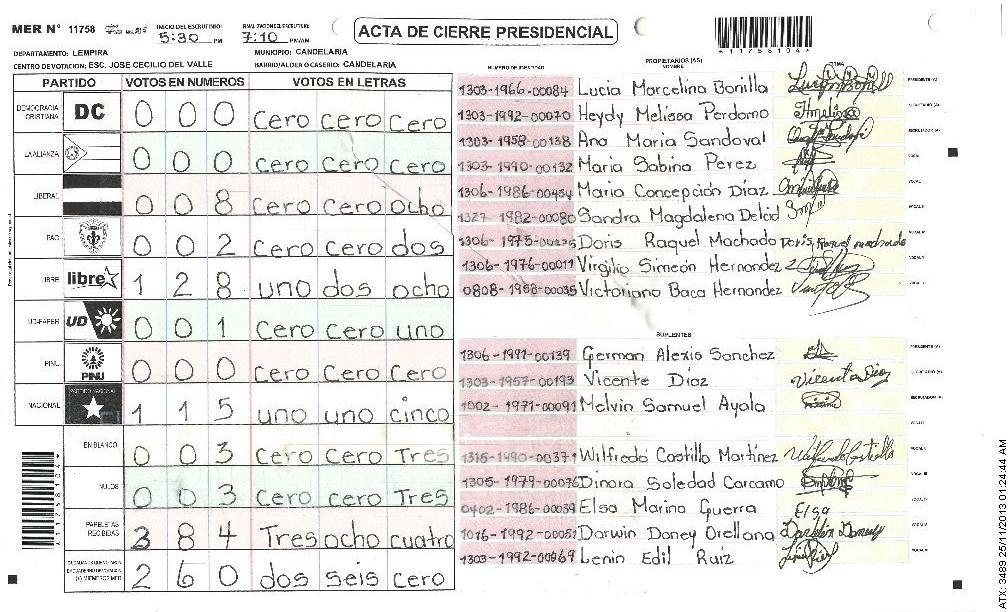 MER Nº 11758
INICIO DEL ESCRUTINIO:
5:30 PM
7:10 PM/AM
ACTA DE CIERRE PRESIDENCIAL
1175B104
DEPARTAMENTO: LEMPIRA
MUNICIPIO: CANDELARIA
CENTRO DE VOTACION: ESC. JOSE CECILIO DEL VALLE
BARRIO/ALDEA O CASERIO: CANDELARIA
PARTIDO VOTOS EN NUMEROS VOTOS EN LETRAS
DEMOCRACIA CRISTIANA DC 0 0 0 cero cero cero
LA ALIANZA 0 0 0 cero cero cero
LIBERAL 0 0 8 cero cero ocho
PAC 0 0 2 cero cero dos
LIBRE libre 1 2 8 uno dos ocho
UD-FAPER UD 0 0 1 cero cero uno
PINU PINU 0 0 0 cero cero cero
NACIONAL 1 1 5 uno uno cinco
EN BLANCO 0 0 3 cero cero Tres
NULOS 0 0 3 cero cero Tres
PAPELETAS RECIBIDAS 3 8 4 Tres ocho cuatro
2 6 0 dos seis cero
NUMERO DE IDENTIDAD
PROPIETARIOS (AS)
NOMBRE
FIRMA
1303-1966-00084 Lucia Marcelina Bonilla
1303-1992-00070 Heydy Melissa Perdomo
1303-1958-00138 Ana Maria Sandoval
1303-1990-00132 Maria Sabina Perez
1306-1986-00434 Maria Concepción Díaz
1327-1982-00080 Sandra Magdalena Delcid
Doris Raquel Machado Doris Raquel machado
1306-1976-00011 Virgilio Simeón Hernandez
0808-1958-00035 Victoriano Baca Hernandez
SUPLENTES
1306-1991-00139 German Alexis Sanchez
1303-1957-00193 Vicente Díaz Vicente Diaz
1002-1971-00091 Melvin Samuel Ayala
Wilfredo Castillo Martínez
1305-1979-00076 Dinora Soledad Carcamo
0402-1986-00039 Elsa Marina Guerra Elsa
1016-1992-00051 Darwin Doney Orellana
1303-1992-00069 Lenin Edil Ruiz
ATX: 3489 25/11/2013 01:24:44 AM